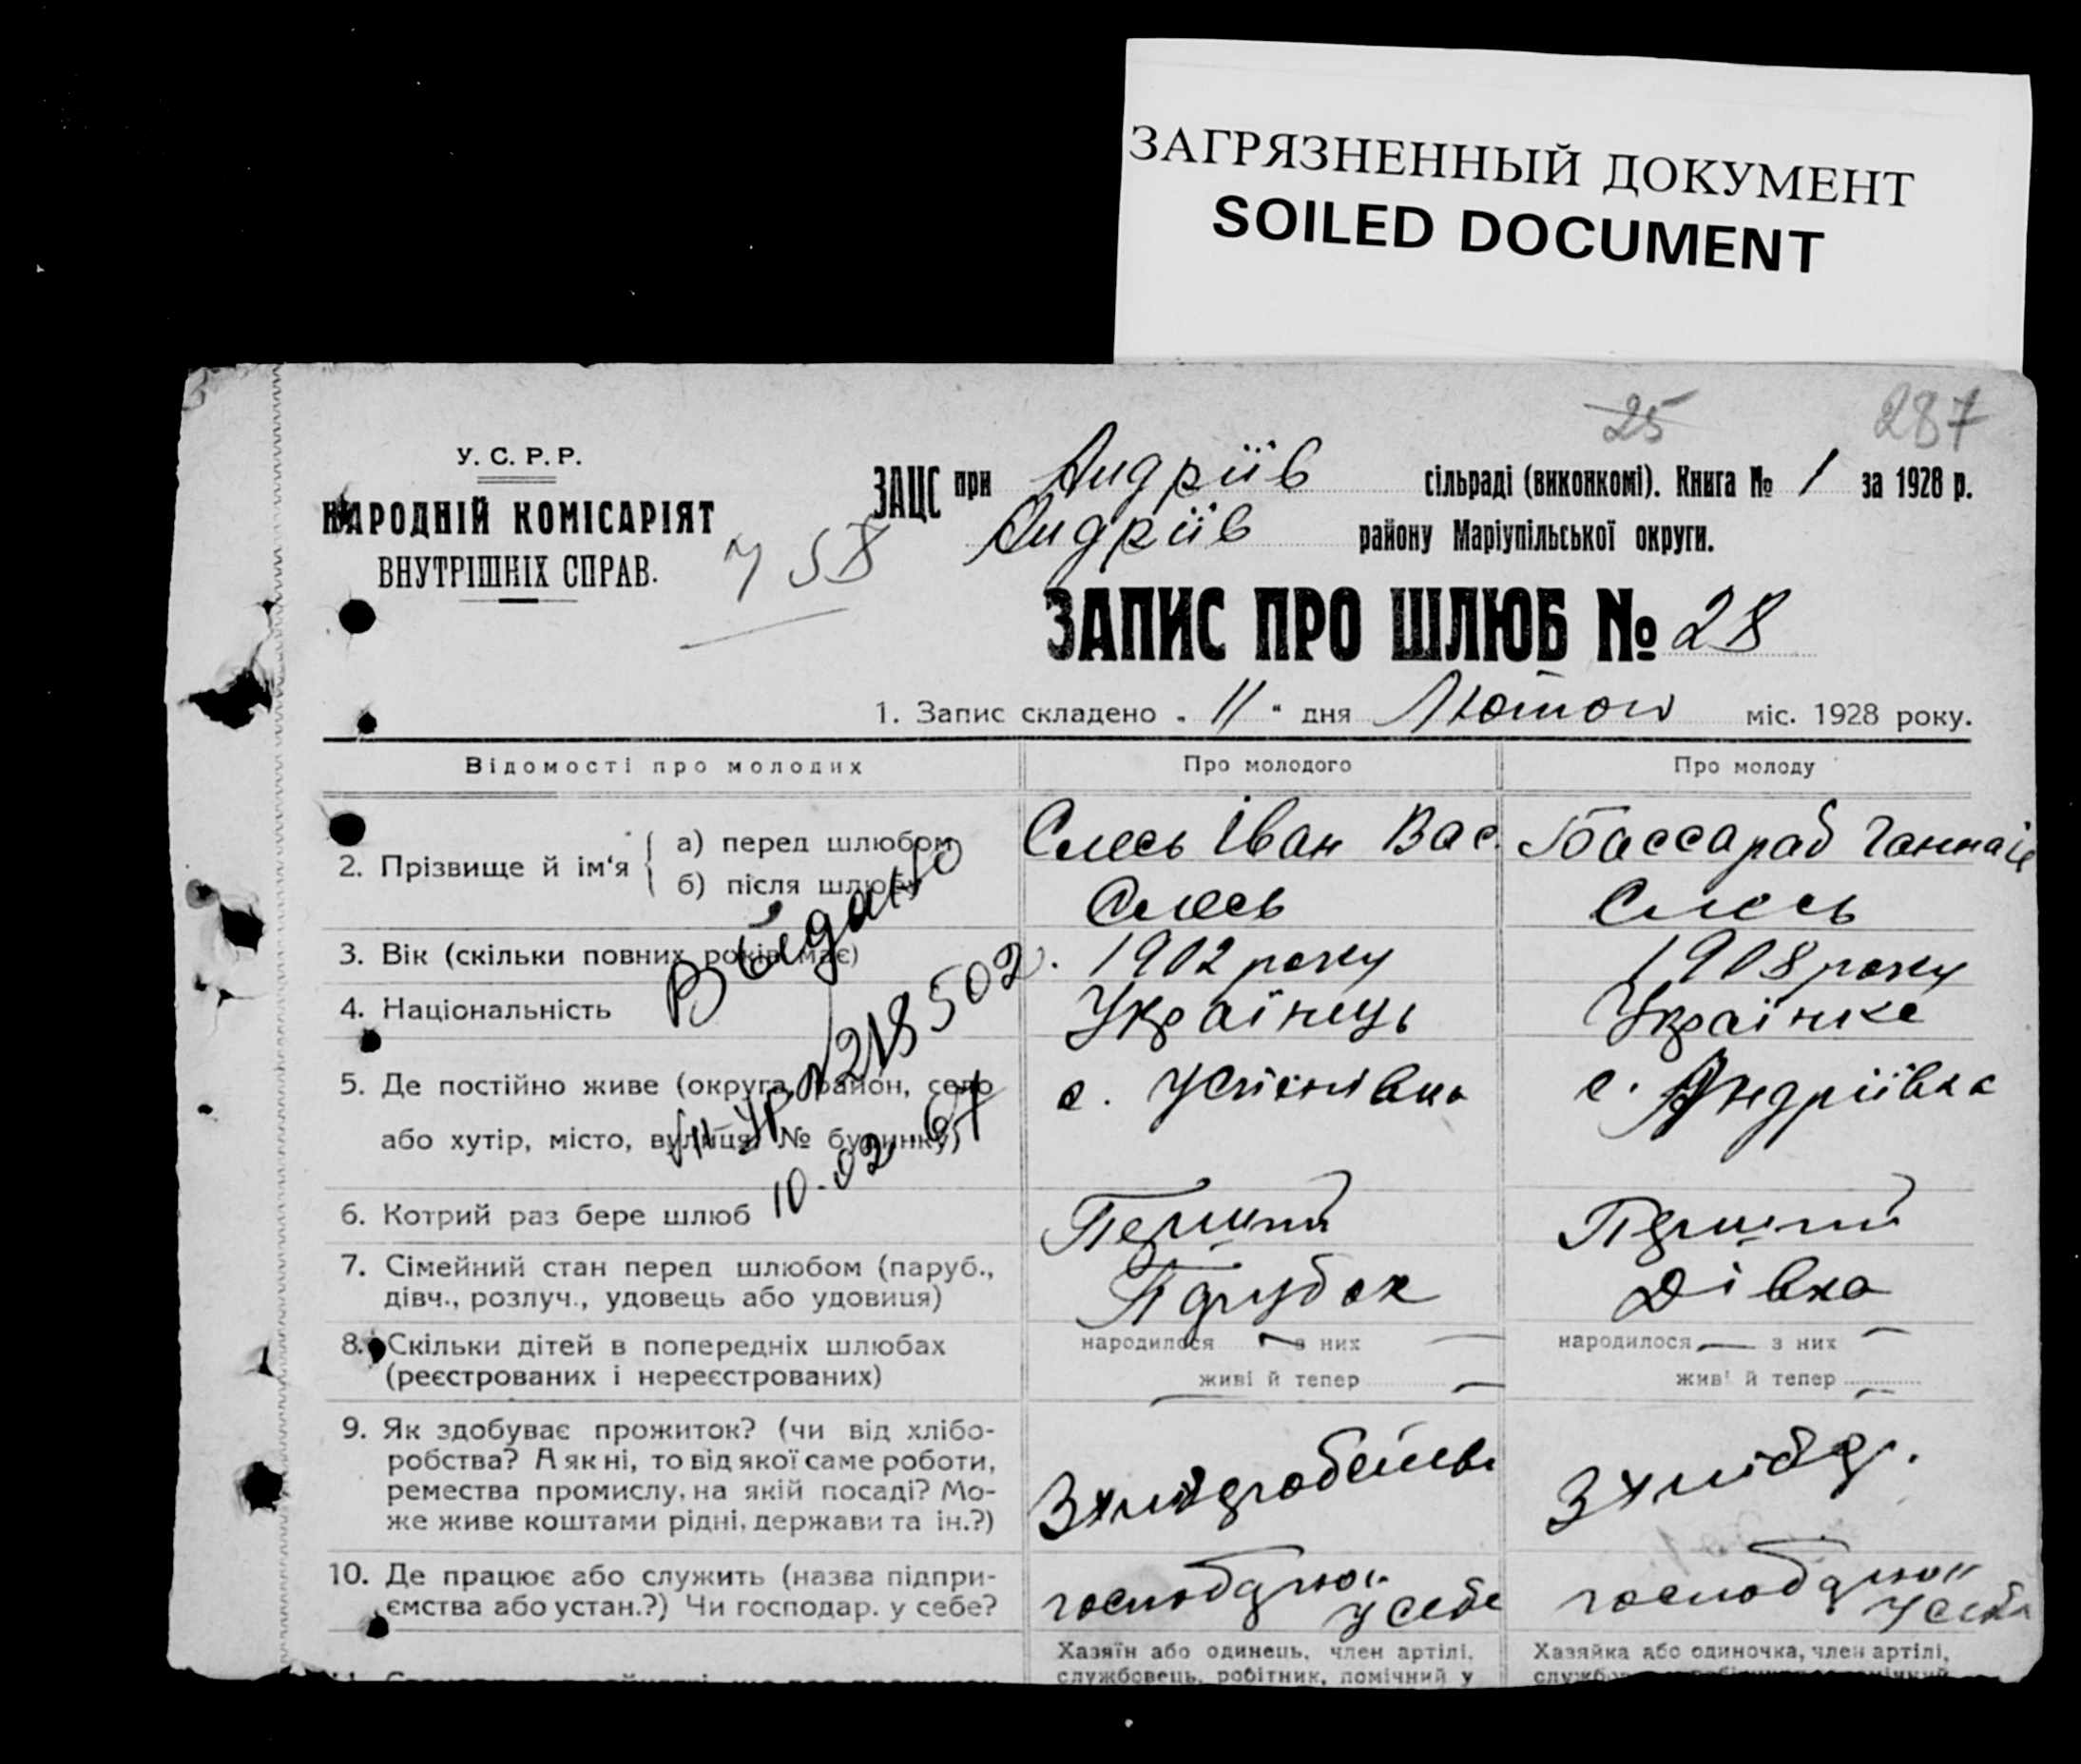 ЗАГРЯЗНЕННЫЙ ДОКУМЕНТ
SOILED DOCUMENT
25 287
У. С. Р. Р.
НАРОДНІЙ КОМІСАРІЯТ
ВНУТРІШНІХ СПРАВ.
758
ЗАЦС при Андріїв сільраді (виконкомі). Книга № 1 за 1928 р.
Андріїв району Маріупільської округи.
ЗАПИС ПРО ШЛЮБ № 28
1. Запис складено „ 11 “ дня міс. 1928 року.
Відомості про молодих Про молодого Про молоду
2. Прізвище й ім‘я
а) перед шлюбом Слесь Іван Вас. Бассараб Ганна
б) після шлюбу Слесь Слесь
3. Вік (скільки повних років має) 1902 року 1908 року
4. Національність Українець Українка
5. Де постійно живе (округа, район, село с. Успенівка с. Андріївка
або хутір, місто, вулиця, № будинку)
Выдано
№ 218502
10.02.67
6. Котрий раз бере шлюб Перший Перший
7. Сімейний стан перед шлюбом (паруб., Парубок Дівка
дівч., розлуч., удовець або удовиця)
8. Скільки дітей в попередніх шлюбах народилося — з них — народилося — з них —
(реєстрованих і нереєстрованих) живі й тепер — живі й тепер —
9. Як здобуває прожиток? (чи від хлібо-
робства? А як ні, то від якої саме роботи,
ремества промислу, на якій посаді? Мо-
же живе коштами рідні, держави та ін.?)
З хліб
10. Де працює або служить (назва підпри-
ємства або устан.?) Чи господар. у себе?
у себе у себе
Хазяїн або одинець, член артілі, Хазяйка або одиночка, член артілі,
службовець, робітник, помічний у